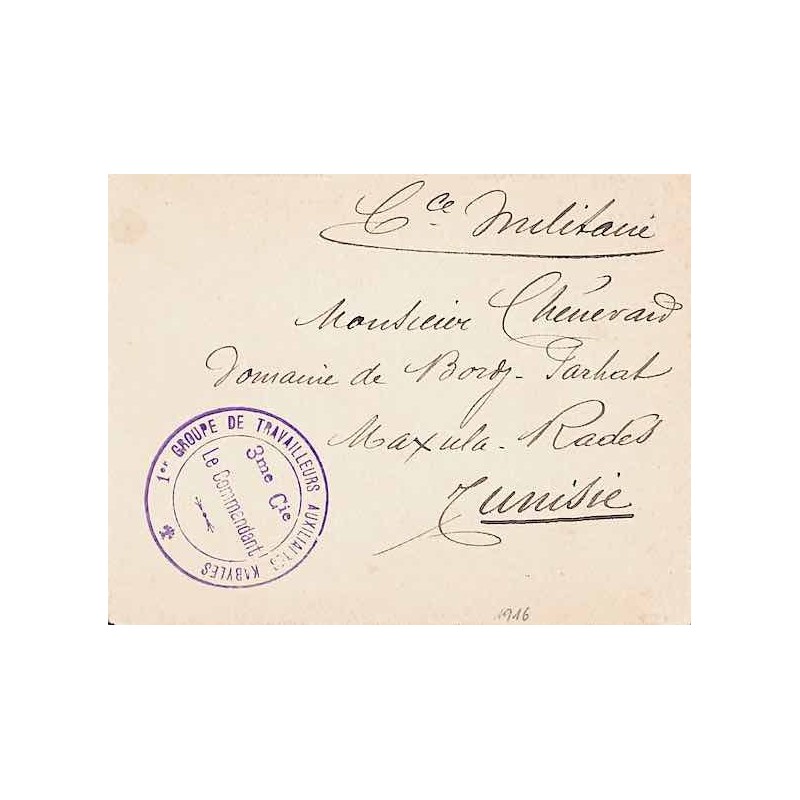 Cce Militaire
Monsieur Chênevard
Domaine de Bordj-Farhat
Maxula-Radès
Tunisie
1er GROUPE DE TRAVAILLEURS AUXILIAIRES KABYLES
3me Cie
Le Commandant
1916